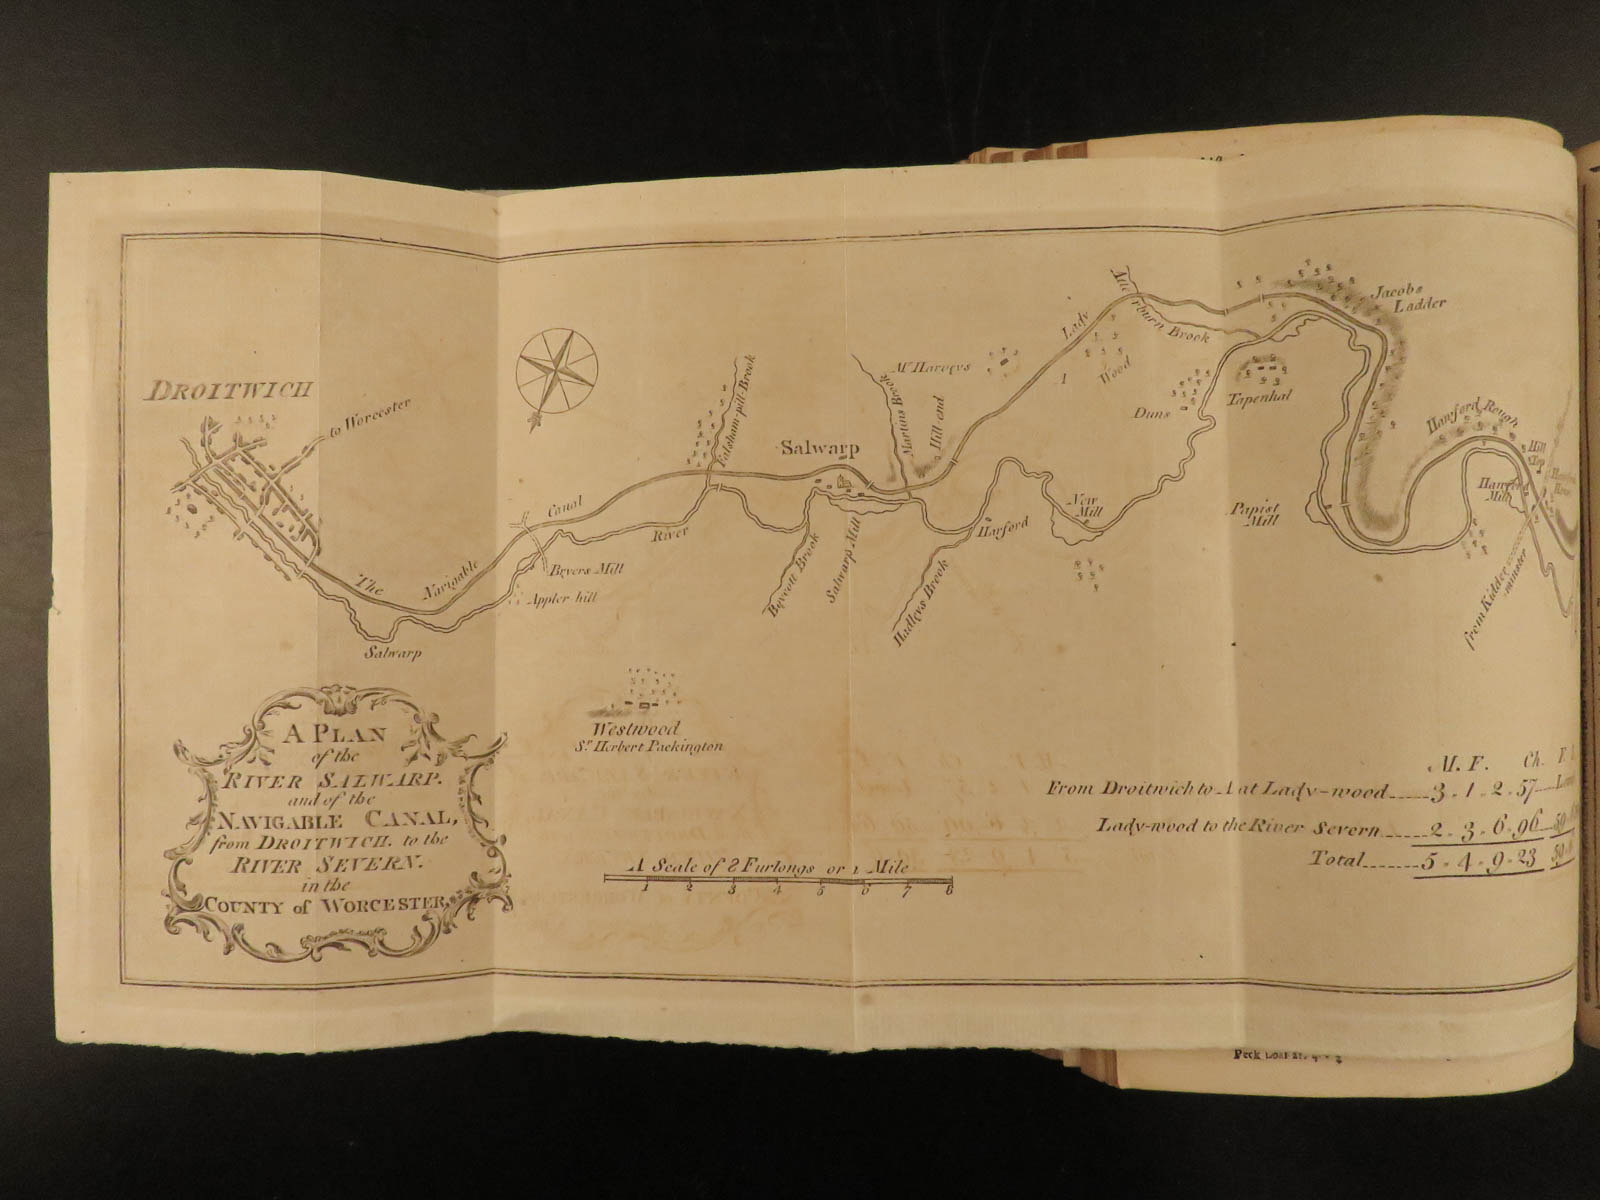 DROITWICH
to Worcester
The Navigable Canal
River
Salwarp
Falsham-pill-Brook
Byvers Mill
Appler hill
Salwarp
Salwarp Mill
Martins Brook
Mr. Harveys
Hill-end
Hadleys Brook
Harford
New Mill
Lady Wood
A
Brook
Duns
Tapenhal
Jacobs
Ladder
Papist
Mill
Hawford Rough
Hill
Top
Hawford
Mill
from Kidder
minster
Westwood
Sr. Herbert Packington
A PLAN
of the
RIVER SALWARP.
and of the
NAVIGABLE CANAL,
from DROITWICH. to the
RIVER SEVERN.
in the
COUNTY of WORCESTER.
A Scale of 8 Furlongs or 1 Mile
1 2 3 4 5 6 7 8
M. F. Ch.
From Droitwich to A at Lady-wood 3 . 1 . 2 . 57
Lady-wood to the River Severn 2 . 3 . 6 . 96
Total 5 . 4 . 9 . 23